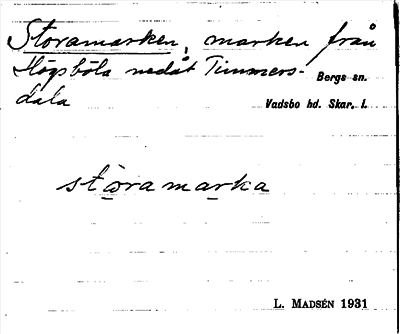 Storamarken, marken från
Högsböla nedåt Timmers-
dala
Bergs sn.
Vadsbo hd. Skar. l.
stòramarka
L. MADSÉN 1931